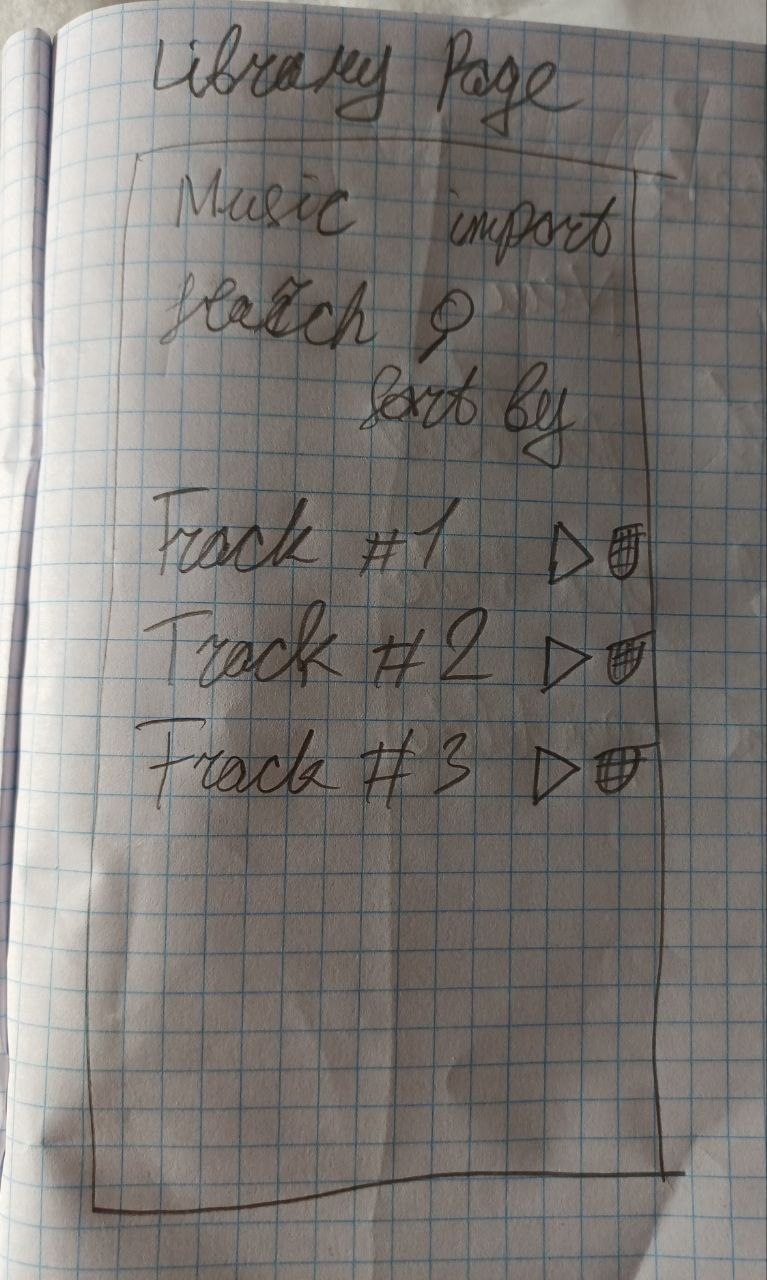 Library Page
Music import
search
sort by
Track #1
Track #2
Track #3